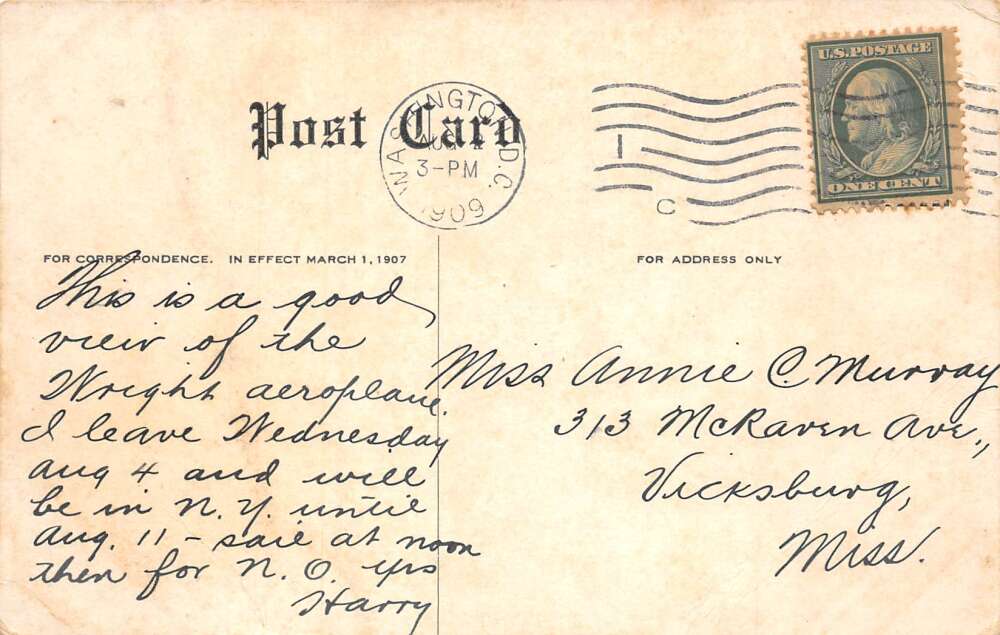 U.S. POSTAGE
ONE CENT
WASHINGTON, D.C.
AUG 1
3-PM
1909
1
C
Post Card
FOR CORRESPONDENCE. IN EFFECT MARCH 1, 1907
FOR ADDRESS ONLY
This is a good
view of the
Wright aeroplane.
I leave Wednesday
Aug 4 and will
be in N. Y. until
Aug. 11 – sail at noon
then for N. O. yrs
Harry
Miss Annie C. Murray
313 McRaven Ave.,
Vicksburg,
Miss.